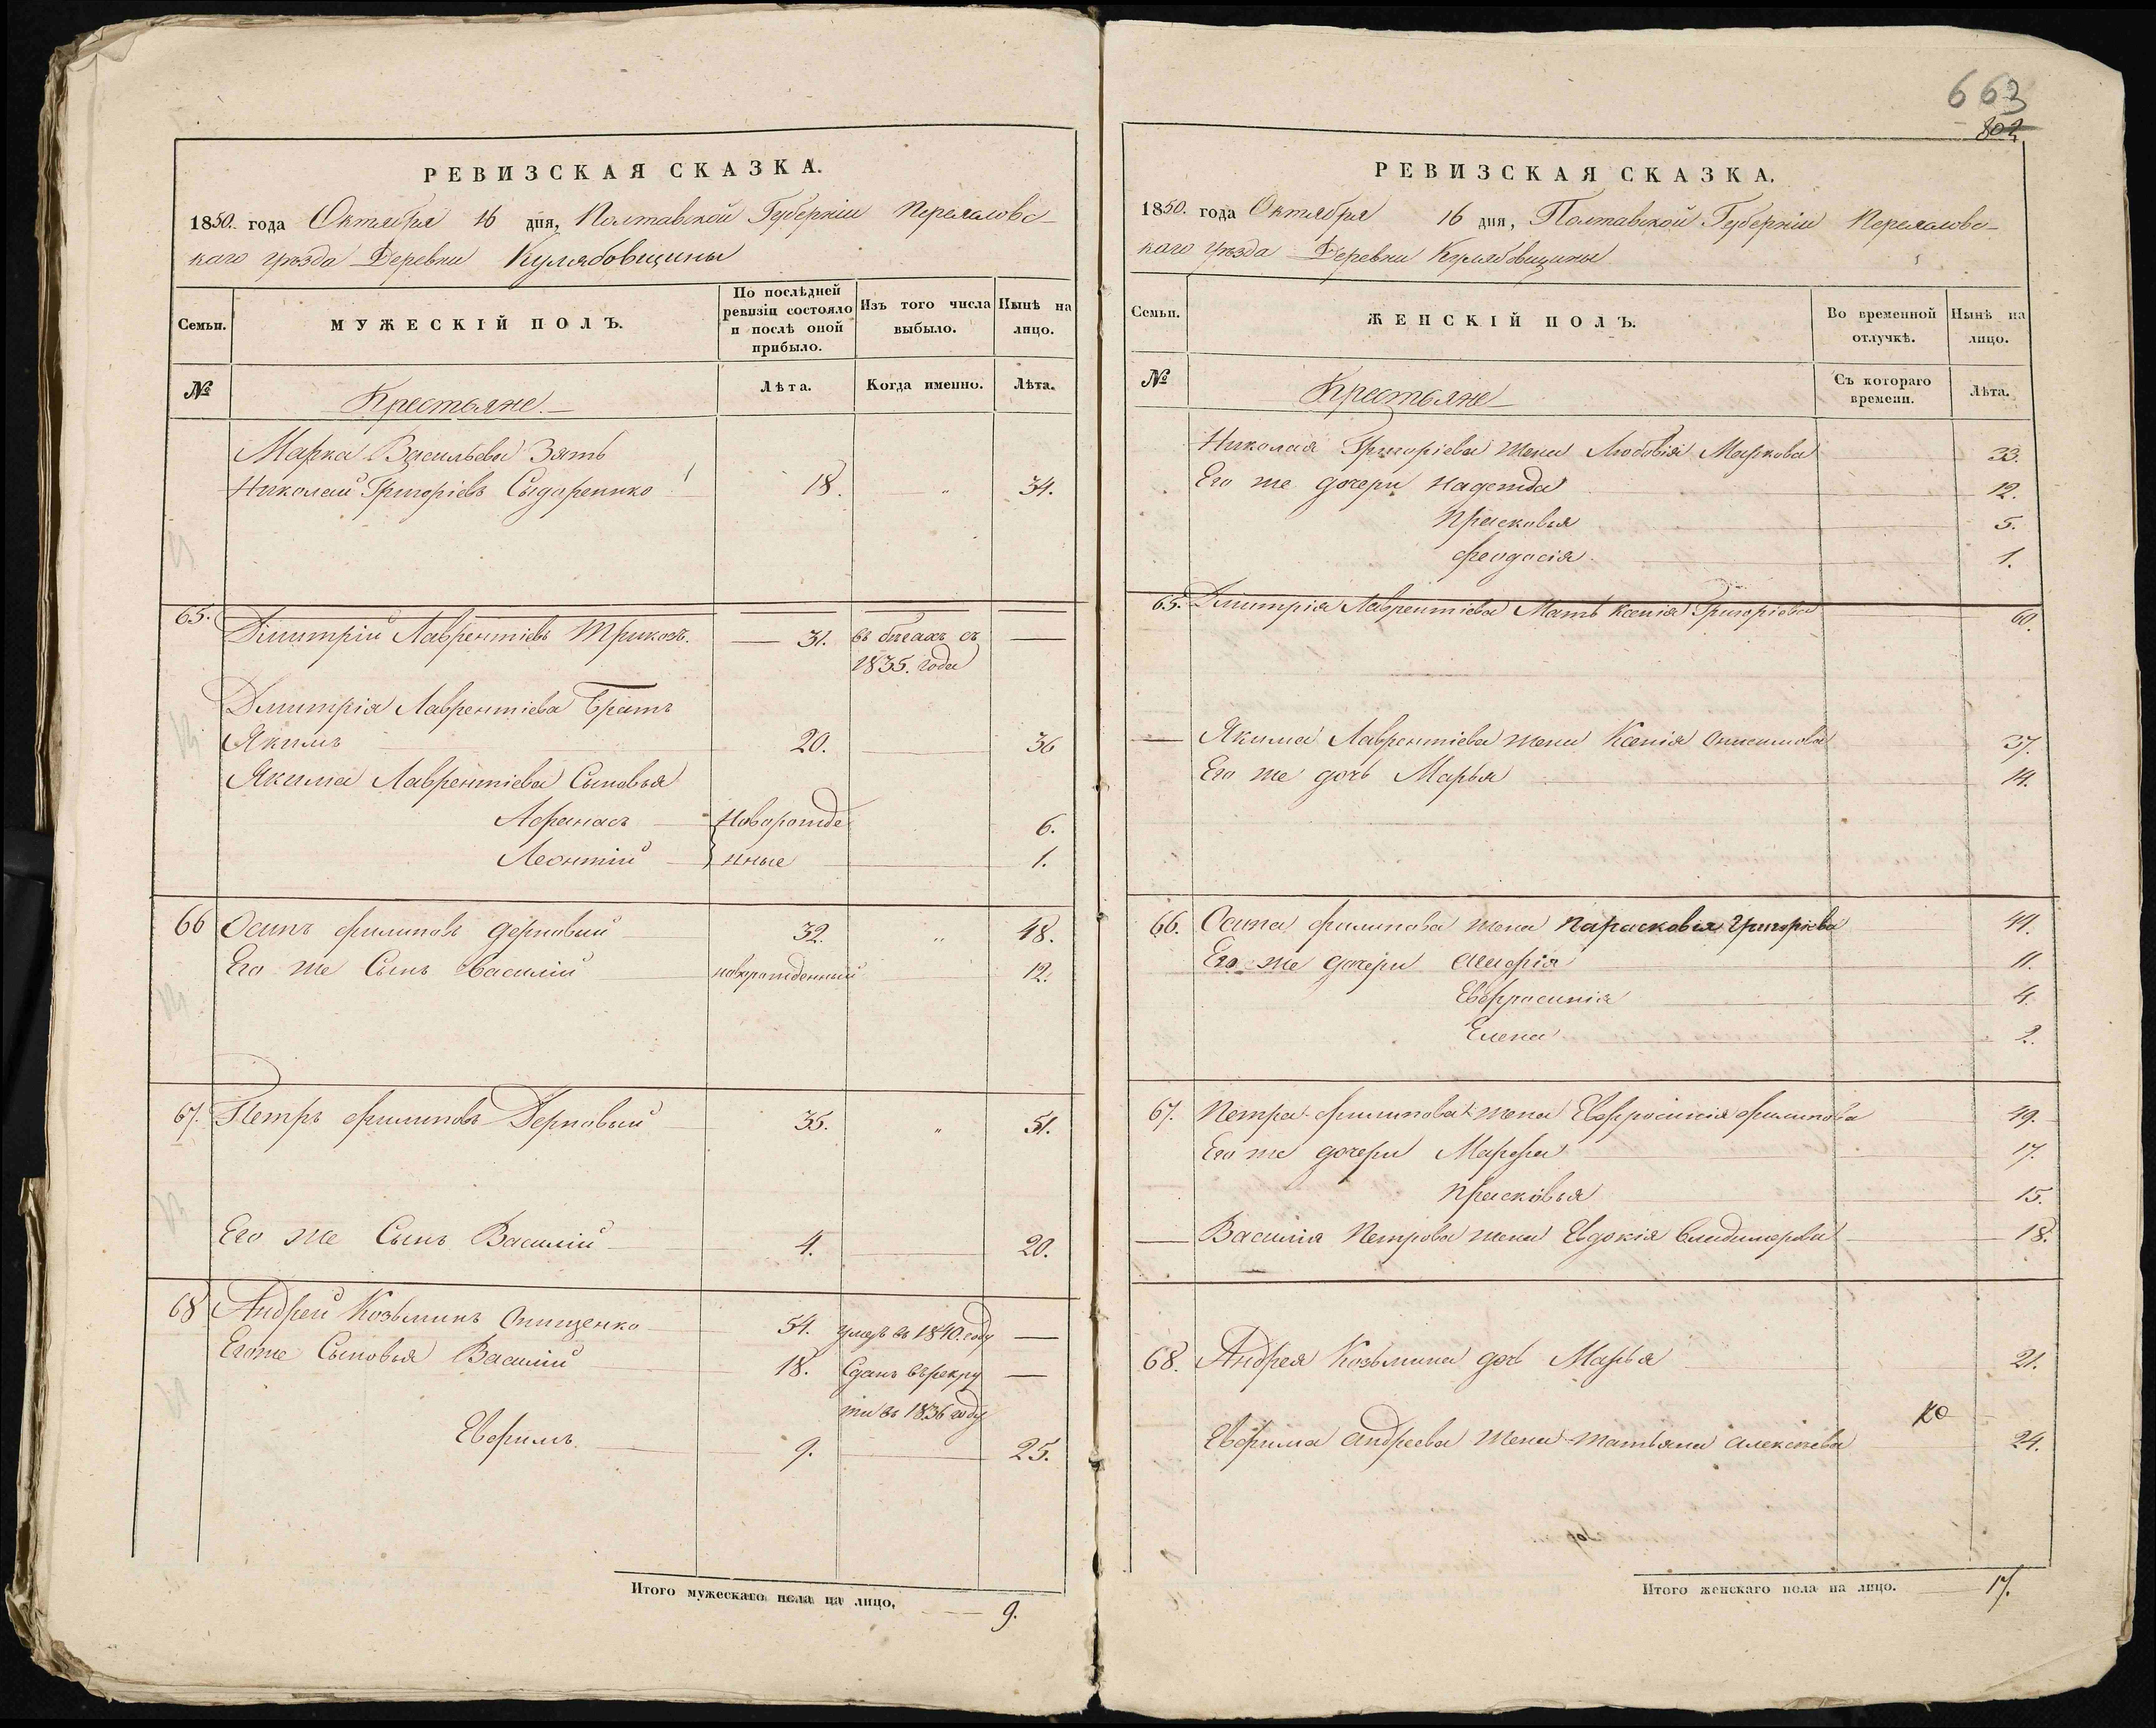 663
802
РЕВИЗСКАЯ СКАЗКА.
1850. года Октября 16 дня, Полтавской Губерніи Переяловс-
каго уѣзда Деревни Кулябовщины
Семьи.
МУЖЕСКІЙ ПОЛЪ.
По послѣдней ревизіи состояло и послѣ оной прибыло.
Изъ того числа выбыло.
Нынѣ на лицо.
№
Крестьяне.
Лѣта.
Когда именно.
Лѣта.
Марка Васильева Зять
Николай Григоріевъ Сыдоренко 18. „ 34.
65. Дмитрій Лаврентіевъ 31. въ бѣгахъ съ
1835. года
Дмитрія Лаврентіева Братъ
Якимъ 20. 36
Якима Лаврентіева Сыновья
Афанасъ Новорожде 6.
Леонтій нные 1.
66 Осипъ Филиповъ Дерповый 32. „ 48.
Его же Сынъ Василій новорожденный 12.
67. Петръ Филиповъ Дерповый 35. „ 51.
Его же Сынъ Василій 4. 20.
68 Андрей Козьминъ Онищенко 54. умеръ въ 1840. году
Его же Сыновья Василій 18. Сданъ въ рекру
ты въ 1836 году
Евфимъ 9. 25.
Итого мужескаго пола на лицо, 9.
РЕВИЗСКАЯ СКАЗКА.
1850. года Октября 16 дня, Полтавской Губерніи Переяловс-
каго уѣзда Деревни Кулябовщины
Семьи.
ЖЕНСКІЙ ПОЛЪ.
Во временной отлучкѣ.
Нынѣ на лицо.
№
Крестьяне
Съ котораго времени.
Лѣта.
Николая Григоріева жена Любовія Маркова 33.
Его же дочери Надежда 12.
Прасковья 5.
Феодосія 1.
65. Дмитрія Лаврентіева Мать Ксенія Григоріева 60.
Якима Лаврентіева жена Ксенія Онисимова 37.
Его же дочь Марья 14.
66. Осипа Филипова жена Параскевія Григоріева 41.
Его же дочери 11.
Евфросинія 4.
Елена 2.
67. Петра Филипова жена Евфросинія Филипова 49.
Его же дочери Марфа 17.
Прасковья 15.
Василія Петрова жена Евдокія Владимерова 18.
68. Андрея Козьмина дочь Марья 21.
Евфима Андреева жена Татьяна Алексѣева 24.
Итого женскаго пола на лицо. 17.